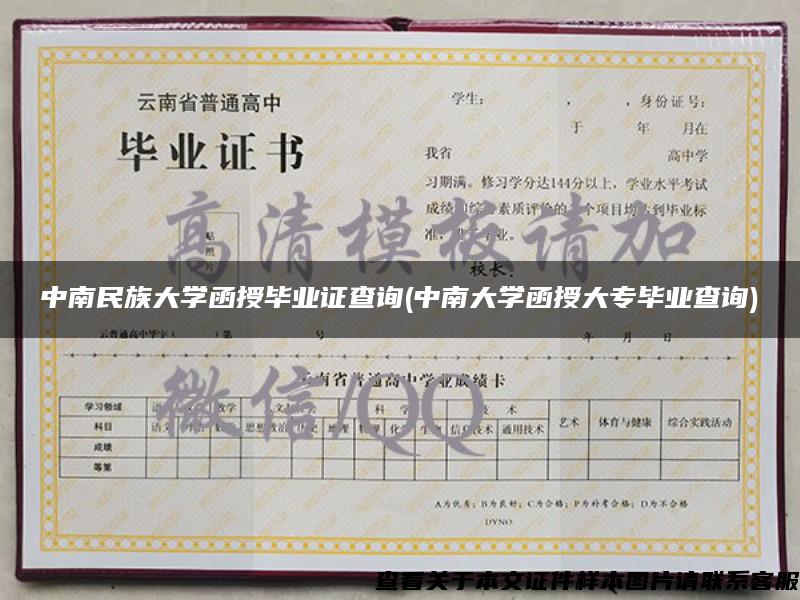 云南省普通高中
毕业证书
学生： ， ，身份证号：
于 年 月在
我省 高中学
习期满。修习学分达144分以上，学业水平考试
成绩和综合素质评价的各个项目均达到毕业标
准，准予毕业。
贴
照
片
高清模板请加
校长：
中南民族大学函授毕业证查询(中南大学函授大专毕业查询)
云普通高中毕字（ ）第 号
年 月 日
云南省普通高中学业成绩卡
微信/QQ
学习领域 数学 科 学 技 术 艺术 体育与健康 综合实践活动
科目 语文 数学 思想政治 历史 地理 物理 化学 生物 信息技术 通用技术
成绩
等第
A为优秀；B为良好；C为合格；P为补考合格；D为不合格
DYNO:
查看关于本文证件样本图片请联系客服